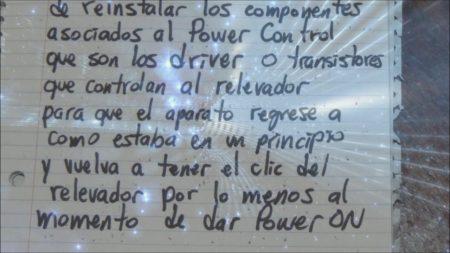 de reinstalar los componentes
asociados al Power Control
que son los driver o transistores
que controlan al relevador
para que el aparato regrese a
como estaba en un principio
y vuelva a tener el clic del
relevador por lo menos al
momento de dar Power ON